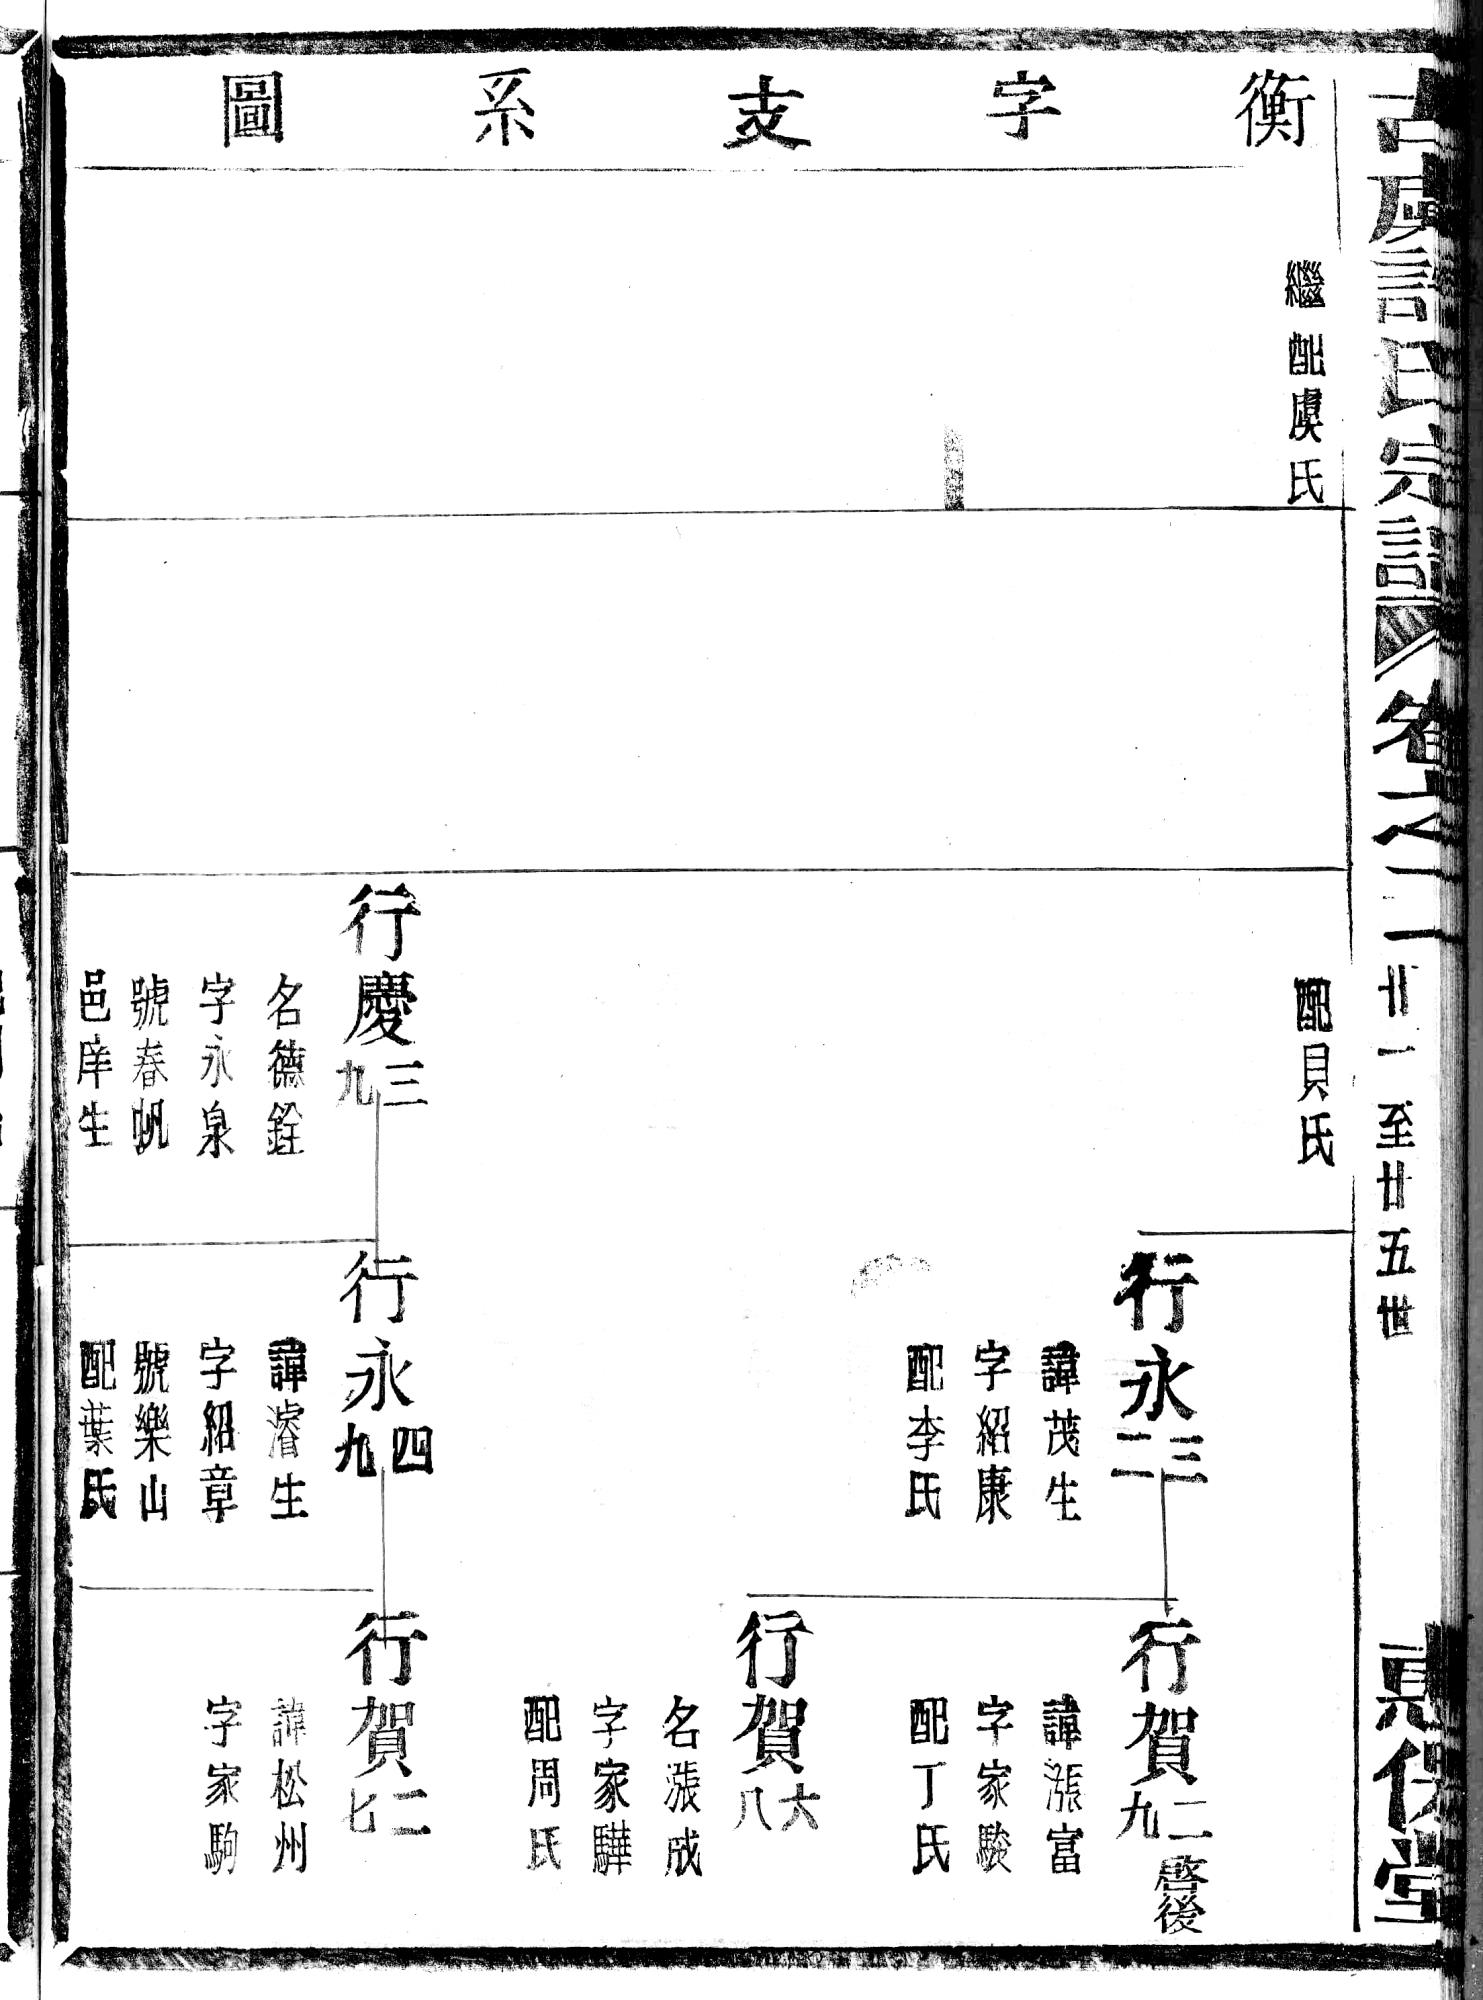 衡字支系圖
氏宗譜
卷之二
廿一至廿五世
保堂
繼配虞氏
配貝氏
行永三二
諱茂生
字紹康
配李氏
行賀二九
啓後
諱漲富
字家駿
配丁氏
行賀六八
名漲成
字家驊
配周氏
行慶三九
名德銓
字永泉
號春帆
邑庠生
行永四九
諱濬生
字紹章
號樂山
配葉氏
行賀二七
諱松州
字家駒